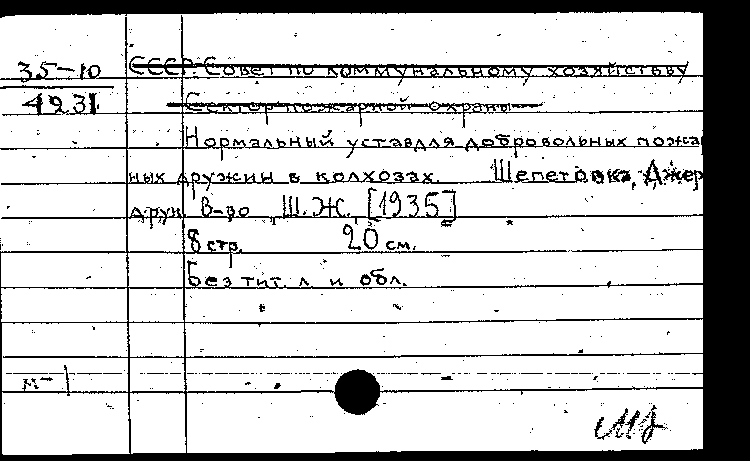 35-10 СССР. Совет по коммунальному хозяйству
4231 Сектор пожарной охраны
Нормальный устав для добровольных пожа
ных дружин в колхозах. Шепетовка, Джер
друк. В-во „Ш.Ж. [1935]
8 стр. 20 см.
Без тит. л. и обл.
м-1